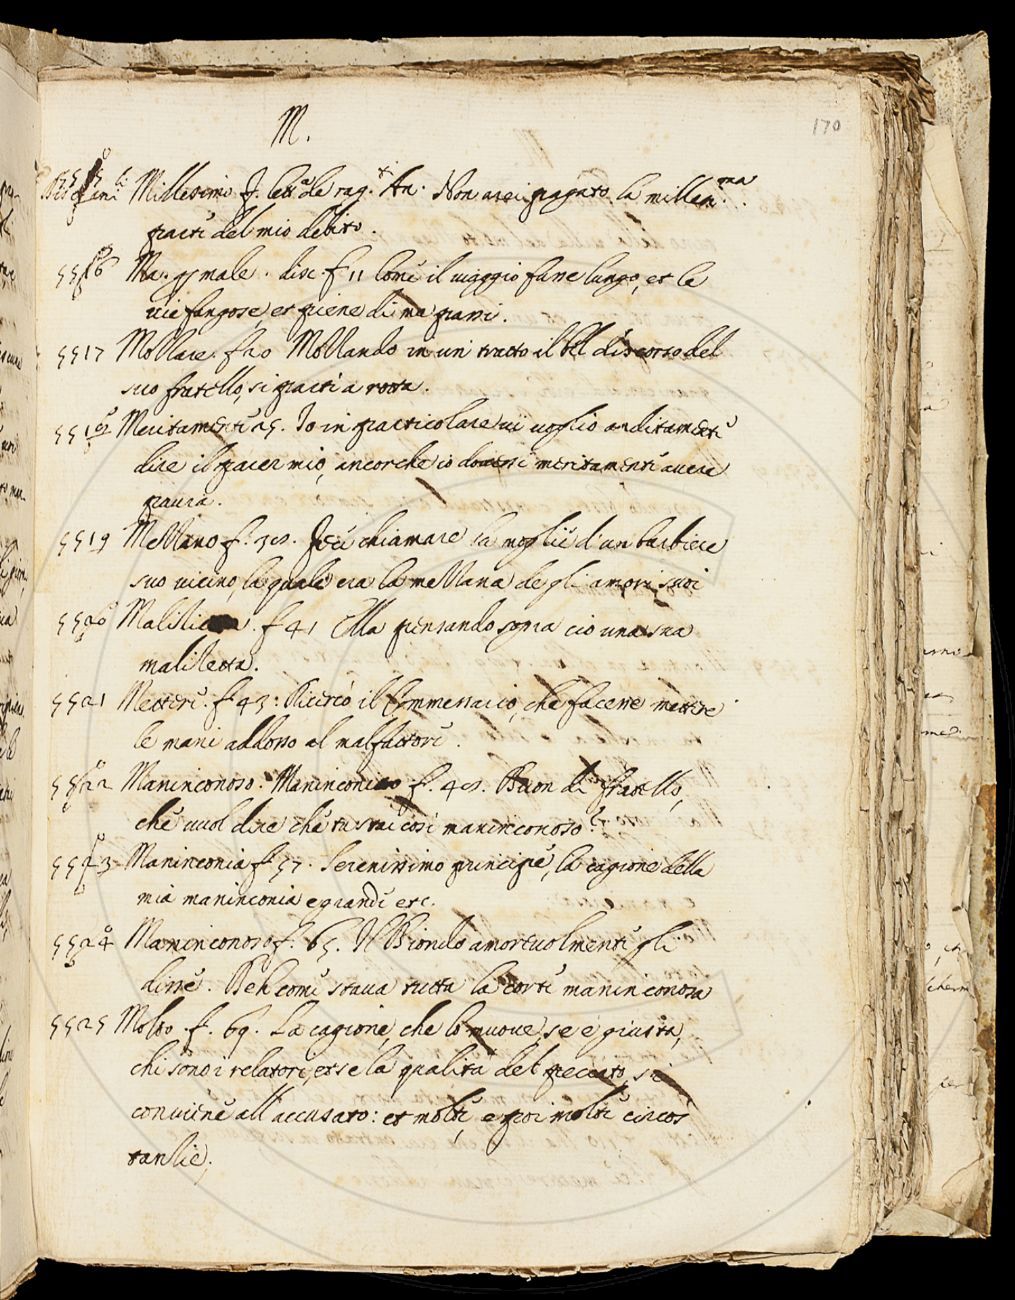 M.
170
Millesimo. f. Non arei pagato la millesᵐᵃ
parti del mio debito.
5516 Ma. male. disc. f 11 come il viaggio fusse lungo, et le
vie fangose, et piene di ma passi.
5517 Mozzare. f 20 Mozzando in un tratto il bel discorso del
suo fratello, si partì a rotta.
5518 Meritamente 25. Io in particolare vi voglio arditamente
dire il parer mio, ancorche io dovessi meritamente avere
paura.
5519 Mezzano f. 38. Fece chiamare la moglie d'un barbiere
suo vicino, la quale era la mezzana degli amori suoi
5520 Malizietta. f 41 Ella pensando sopra ciò una sua
malizietta.
5521 Mettere. f 43: Ricercò il Commessario, che facesse mettere
le mani addosso al malfattore.
5522 Maninconoso. Maninconico f. 48. Buon di fratello,
che vuol dire che tu stai così maninconoso?
5523 Maninconia f. 57. Serenissimo principe, la cagione della
mia maninconia e grande etc.
5524 Maninconoso f. 65. Il Biondo amorevolmente gli
disse. Beh come stava tutta la corte maninconosa
5525 Molto. f. 69. La cagione, che lo muove, se è giusta,
chi sono i relatori, et se la qualità del peccato, si
conviene all'accusato: et molte, e poi molte circos
tanzie.